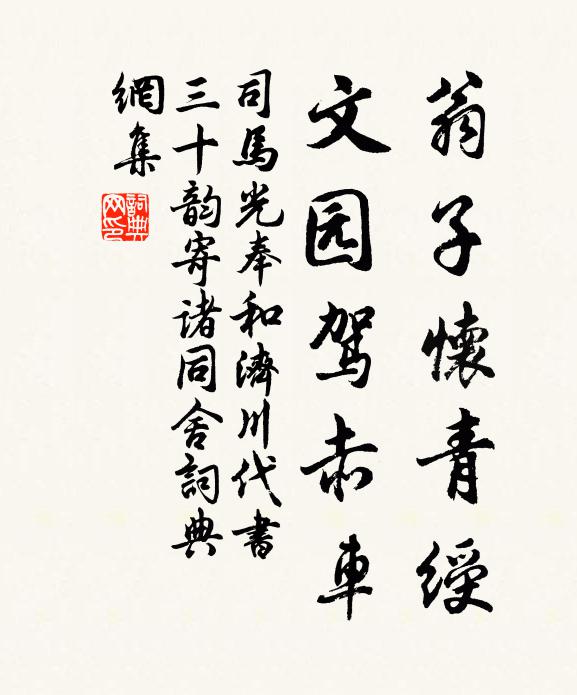 翁子懷青綬
文园駕赤車
司馬光奉和濟川代書
三十韵寄诸同舍詞典
網集
詞典网印